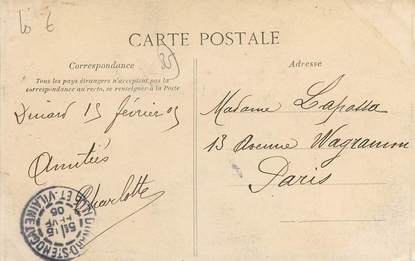 CARTE POSTALE
Correspondance
Tous les pays étrangers n'acceptent pas la
correspondance au recto, se renseigner à la Poste
Adresse
Dinard 15 février 05
Amitiés
Charlotte
Madame Laposse
13 Avenue Wagramm
Paris